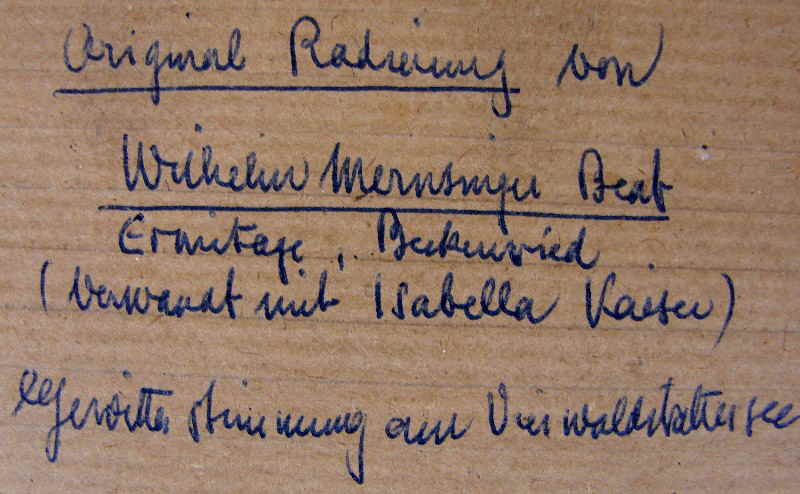 Original Radierung von
Wilhelm Beat
Ermitage, Beckenried
(Verwandt mit Isabella Kaiser)
Gewitterstimmung am Vierwaldstättersee